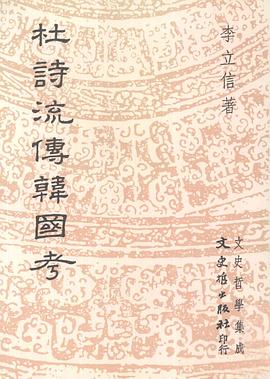 杜詩流傳韓國考
李立信著
文史哲學集成
文史哲出版社印行